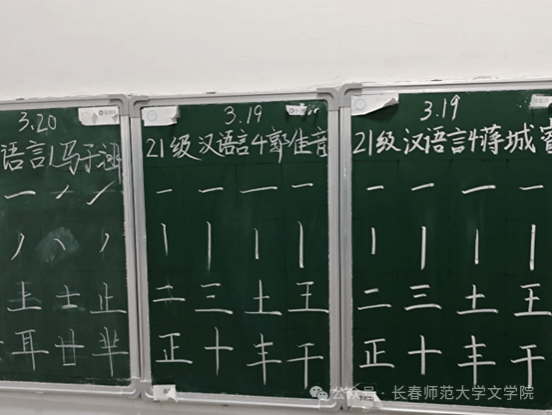 3.20
语言1马子
一
土 士 止
耳 廿 芈
3.19
21级汉语言4郭佳音
一 一 一 一
丨 丨 丨 丨
二 三 土 王
正 十 丰 干
3.19
21级汉语言4蒋城
一 一 一 一
丨 丨 丨 丨
二 三 土 王
正 十 丰 干
公众号·长春师范大学文学院